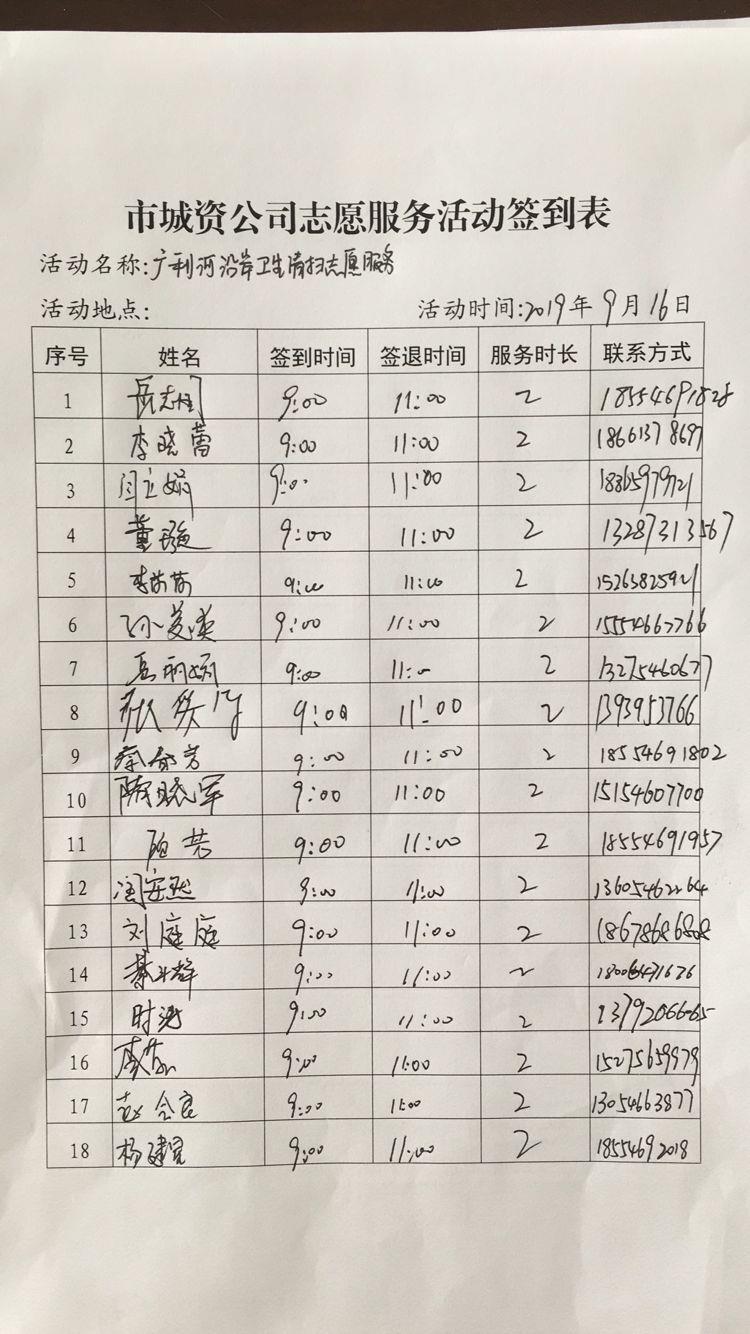 市城资公司志愿服务活动签到表
活动名称:广利河沿岸卫生清扫志愿服务
活动地点:  活动时间:2019年9月16日
序号 姓名 签到时间 签退时间 服务时长 联系方式
1 9:00 11:00 2 18554691828
2 李晓蕾 9:00 11:00 2 18661378697
3 闫立娟 9:00 11:00 2 18365979721
4 董璇 9:00 11:00 2 13287313567
5 李茜茜 9:00 11:00 2 15263825921
6 9:00 11:00 2 15554667766
7 岳丽娟 9:00 11:00 2 13275460677
8 9:00 11:00 2 1393953766
9 蔡郁芳 9:00 11:00 2 18554691802
10 陈晓军 9:00 11:00 2 15154607700
11 9:00 11:00 2 18554691957
12 9:00 11:00 2 13605462264
13 刘庭庭 9:00 11:00 2 18678686808
14 9:00 11:00 2
15 9:00 11:00 2
16 9:00 11:00 2 15275659979
17 赵会良 9:00 11:00 2 13054663877
18 杨建宽 9:00 11:00 2 18554692018